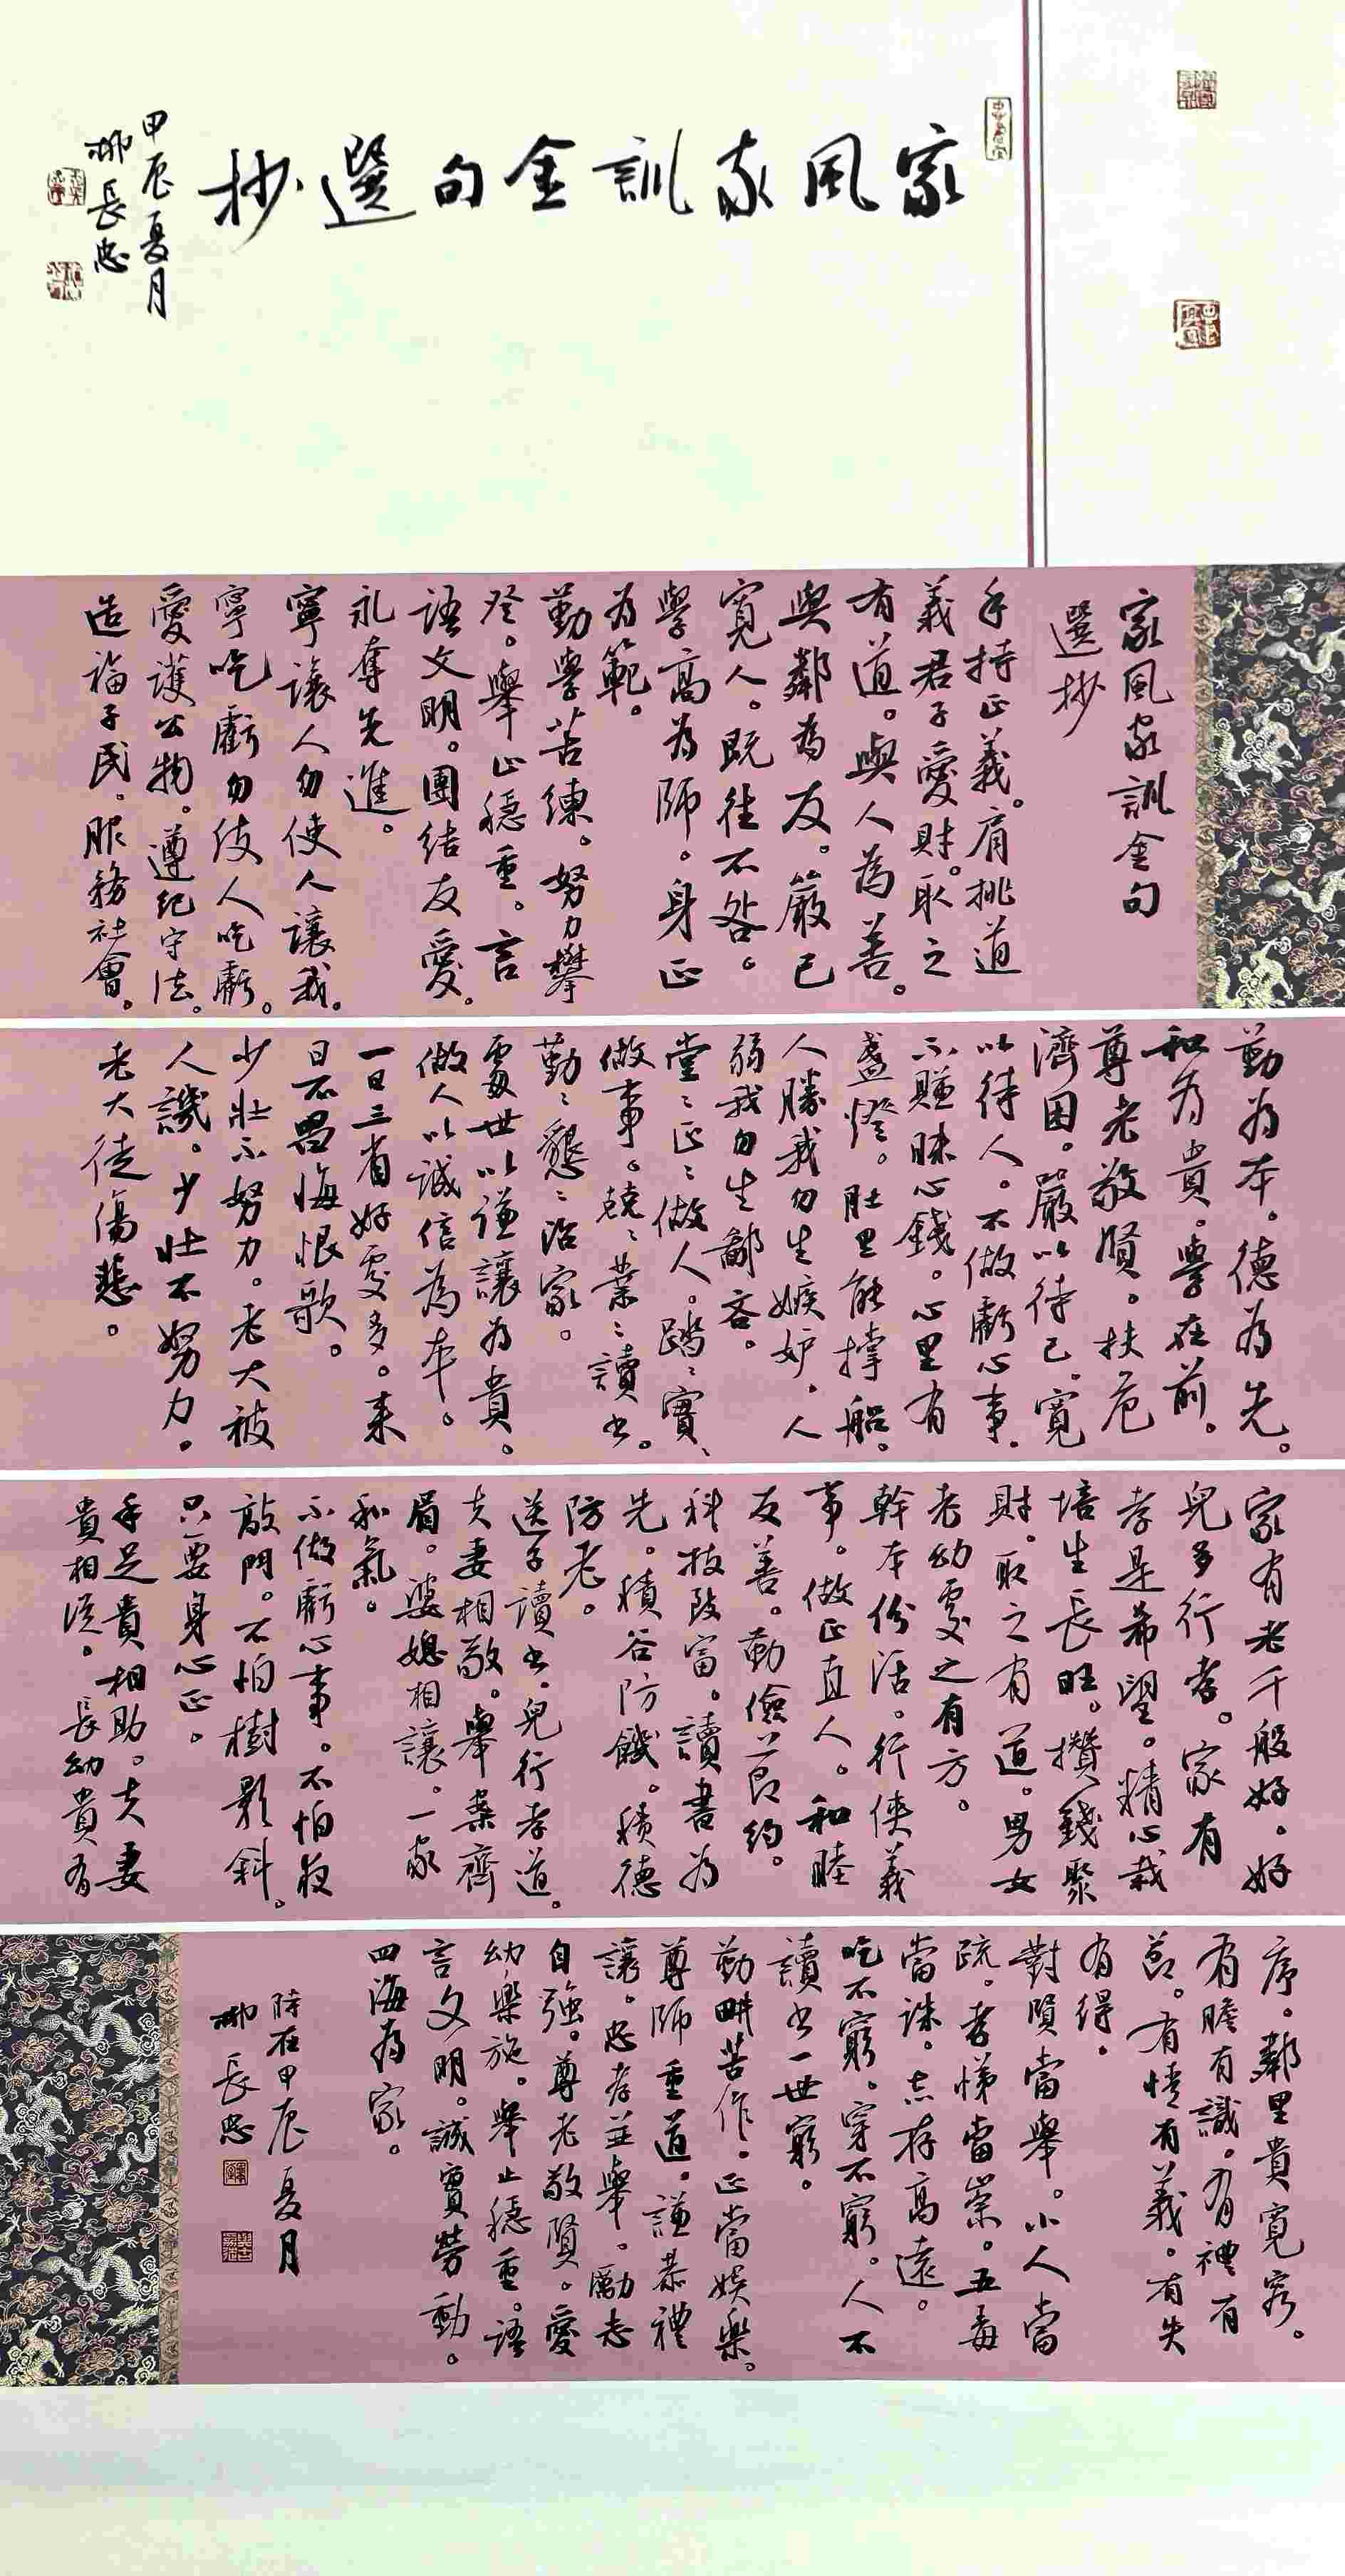 家風家訓金句選抄
甲辰夏月
柳長忠
家風家訓金句
選抄
手持正義。肩挑道
義君子愛財。取之
有道。與人為善。
與鄰為友。嚴己
寬人。既往不咎。
學高為師。身正
為範。
勤學苦練。努力攀
登。舉止穩重。言
語文明。團結友愛。
永奪先進。
寧讓人勿使人讓我。
寧吃虧勿使人吃虧。
愛護公物。遵紀守法。
造福子民。服務社會。
勤為本。德為先。
和為貴。學在前。
尊老敬賢。扶危
濟困。嚴以待己。寬
以待人。不做虧心事。
不賺昧心錢。心里有
盞燈。肚里能撐船。
人勝我勿生嫉妒。人
弱我勿生鄙吝。
堂〻正〻做人。踏〻實〻
做事。兢〻業〻讀书。
勤〻懇〻治家。
處世以謙讓為貴。
做人以誠信為本。
一日三省好處多。來
日不唱悔恨歌。
少壯不努力。老大被
人譏。少壯不努力。
老大徒傷悲。
家有老千般好。好
兒多行孝。家有
孝是希望。精心栽
培生長旺。攢錢聚
財。取之有道。男女
老幼處之有方。
幹本份活。行俠義
事。做正直人。和睦
友善。勤儉節約。
科技致富。讀書為
先。積谷防饑。積德
防老。
送子讀书。兒行孝道。
夫妻相敬。舉案齊
眉。婆媳相讓。一家
和氣。
不做虧心事。不怕夜
敲門。不怕樹影斜。
只要身心正。
手足貴相助。夫妻
貴相從。長幼貴有
序。鄰里貴寬容。
有膽有識。有禮有
節。有情有義。有失
有得。
對賢當舉。小人當
疏。孝悌當崇。五毒
當誅。志存高遠。
吃不窮。穿不窮。人不
讀书一世窮。
勤畊苦作。正當娛樂。
尊師重道。謙恭禮
讓。忠孝並舉。勵志
自強。尊老敬賢。愛
幼樂施。舉止穩重。語
言文明。誠實勞動。
四海為家。
時在甲辰夏月
柳長忠